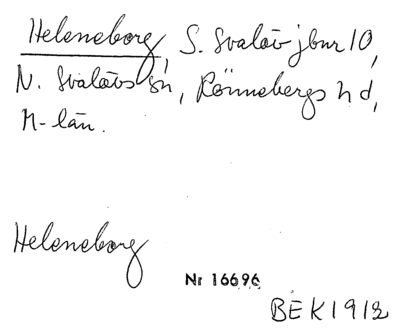 Heleneborg, S. Svalöv jbnr 10,
N. Svalövs sn, Rönnebergs hd,
M-län.
Heleneborg
Nr 16696
BEK1912